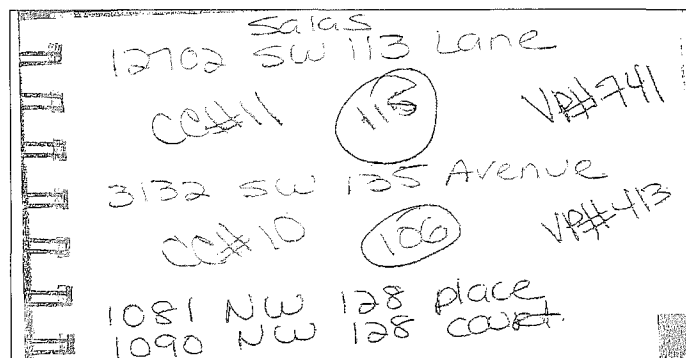 Salas
12702 SW 113 Lane
CC#11 113 VP#741
3132 SW 125 Avenue
CC#10 106 VP#413
1081 NW 128 place
1090 NW 128 court.